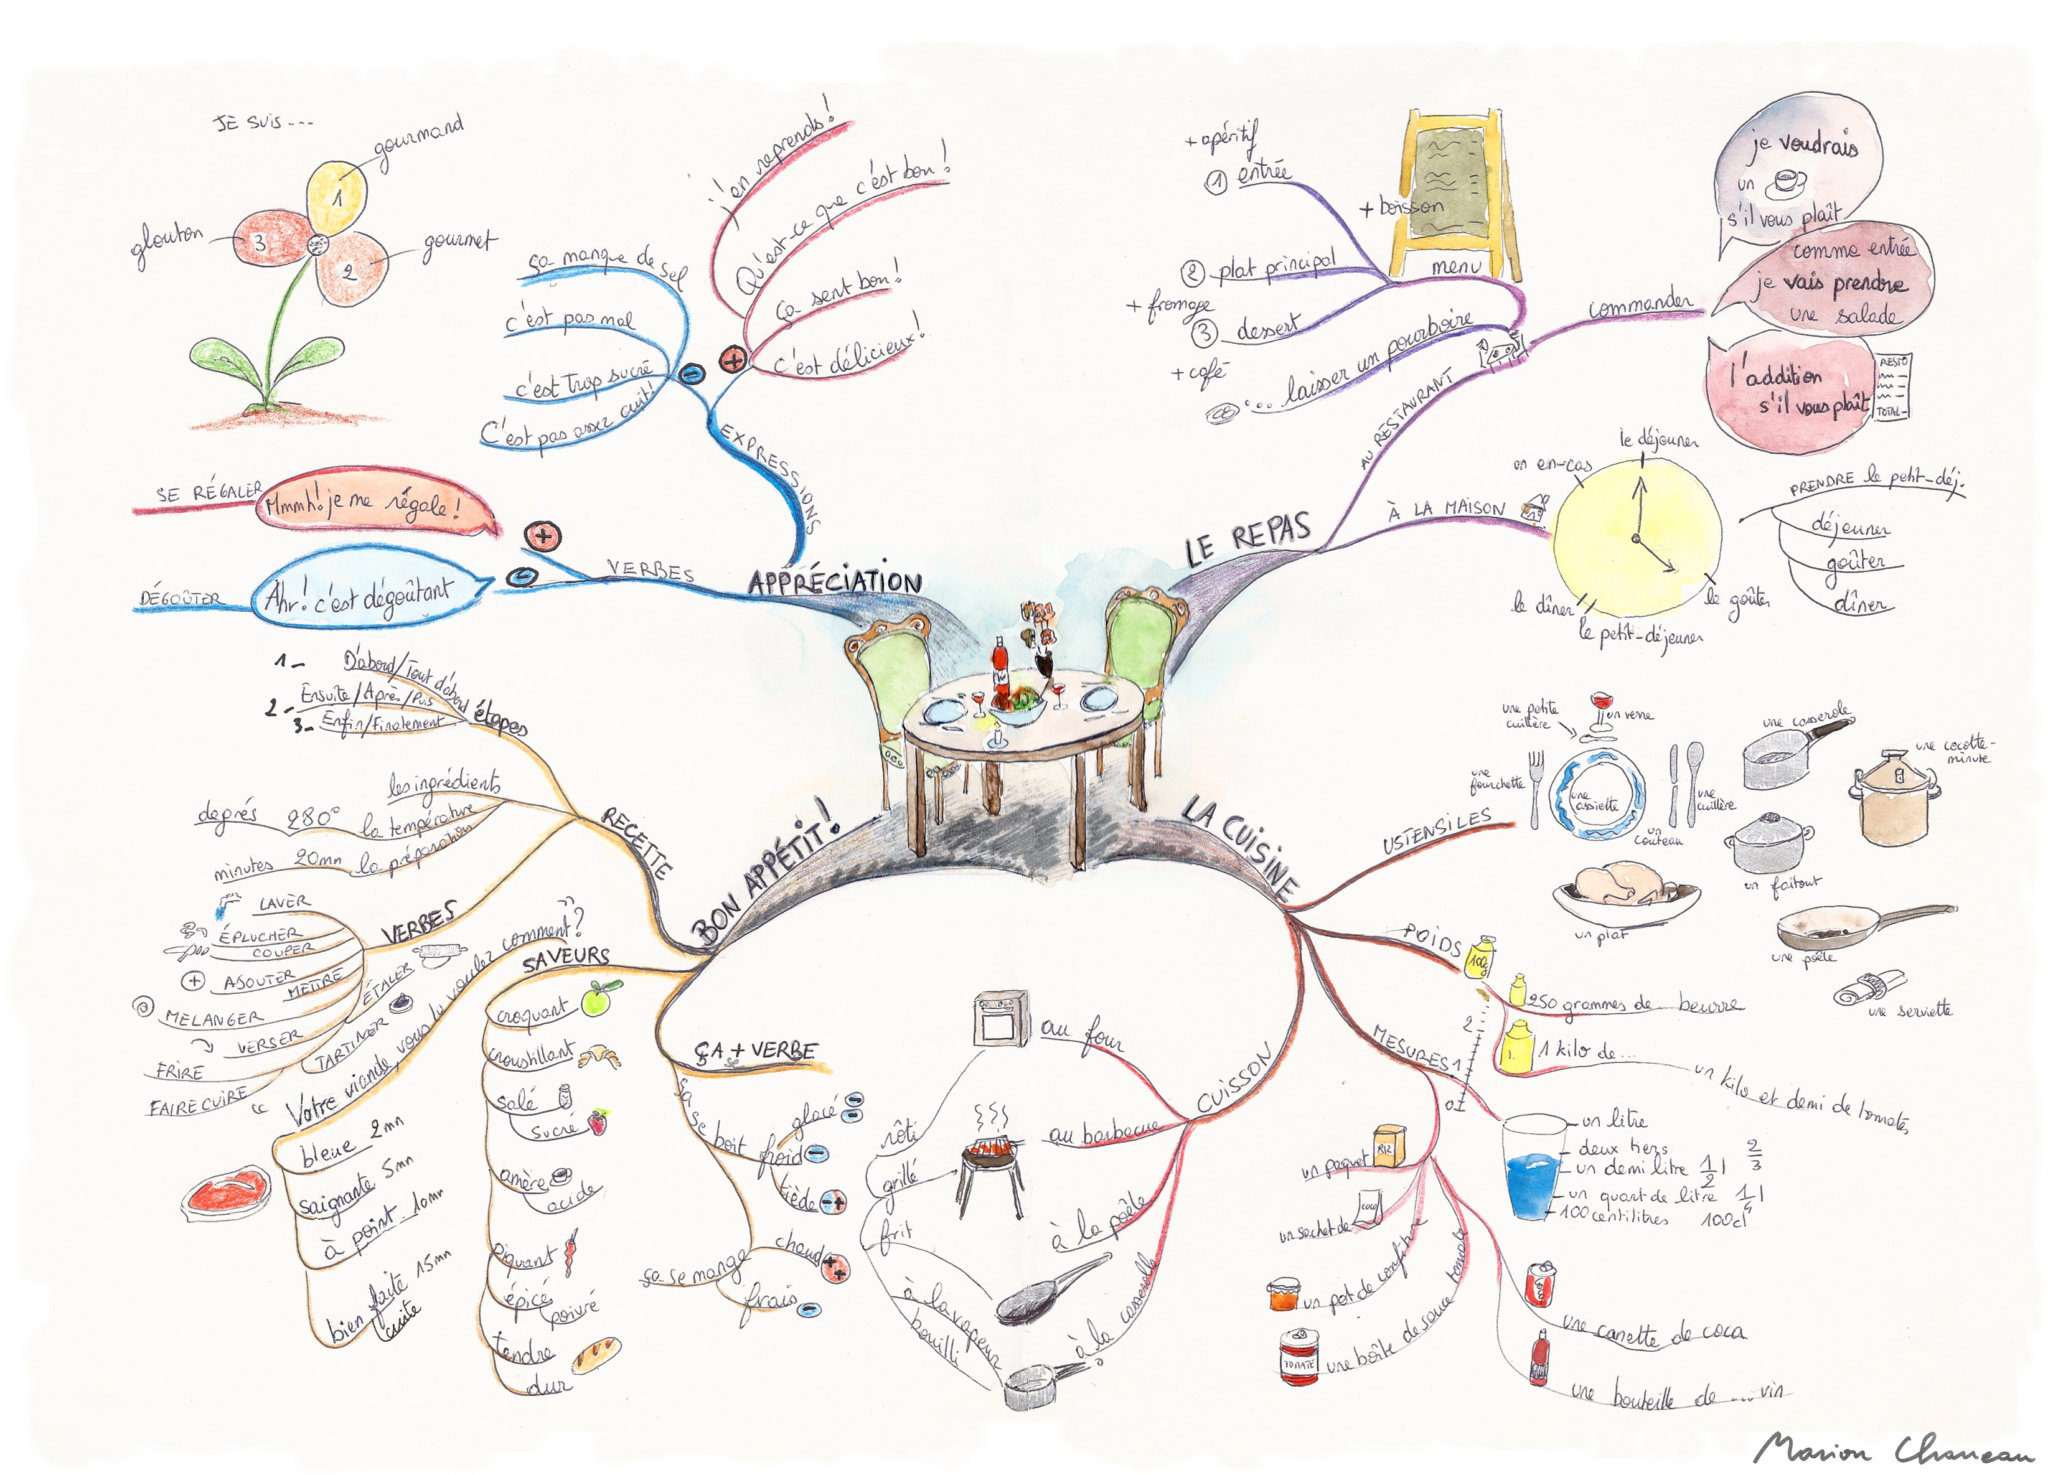 JE SUIS ---
gourmand
1
glouton
3
gourmet
2
SE RÉGALER
Mmmh! je me régale!
+
DÉGOÛTER
Ahr! c'est dégoûtant
-
VERBES
APPRÉCIATION
EXPRESSIONS
-
ça manque de sel
c'est pas mal
c'est trop sucré
C'est pas assez cuit!
+
j'en reprends!
Qu'est-ce que c'est bon!
ça sent bon!
c'est délicieux!
LE REPAS
AU RESTAURANT
menu
+ apéritif
1 entrée
+ boisson
2 plat principal
+ fromage
3 dessert
+ café
... laisser un pourboire
commander
je voudrais
un
s'il vous plaît
comme entrée
je vais prendre
une salade
l'addition
s'il vous plaît
RESTO
TOTAL-
À LA MAISON
le déjeuner
un en-cas
le goûter
le dîner
le petit-déjeuner
PRENDRE le petit-déj.
déjeuner
goûter
dîner
BON APPÉTIT!
RECETTE
étapes
1- D'abord/Tout d'abord
2- Ensuite/Après/Puis
3- Enfin/Finalement
les ingrédients
degrés 280° la température
minutes 20mn la préparation
VERBES
LAVER
ÉPLUCHER
COUPER
+ AJOUTER
METTRE
MELANGER
VERSER
FRIRE
FAIRE CUIRE
ÉTALER
TARTINER
"Votre viande, vous la voulez comment?"
bleue 2mn
saignante 5mn
à point 10mn
bien faite 15mn
cuite
SAVEURS
croquant
croustillant
salé
sucré
amère
acide
piquant
épicé
poivré
tendre
dur
ÇA + VERBE
se
ça se boit
glacé
froid
tiède
ça se mange
chaud
frais
LA CUISINE
USTENSILES
une petite
cuillère
un verre
une
fourchette
une
assiette
un
couteau
une
cuillère
une casserole
une cocotte-
minute
un faitout
un plat
une poêle
une serviette
POIDS
100g
250 grammes de ... beurre
1 kilo de ...
un kilo et demi de tomates
MESURES
2
1
0
un litre
deux tiers 2/3
un demi litre 1/2 l
un quart de litre 1/4 l
100 centilitres 100cl
un paquet
RIZ
un sachet de
COCO
un pot de confiture
une boîte de sauce tomate
TOMATE
une canette de coca
une bouteille de ... vin
CUISSON
au four
au barbecue
à la poêle
à la casserolle
rôti
grillé
frit
à la vapeur
bouilli
Marion Charreau